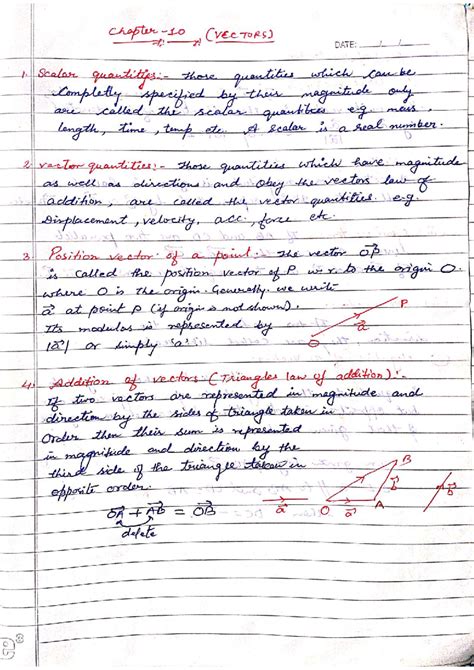 Chapter-10 (VECTORS)
DATE: __/__/__
1. Scalar quantities:- Those quantities which can be
completly specified by their magnitude only
are called the scalar quantities e.g mass,
length, time, temp etc. A scalar is a real number.
2. vector quantities:- Those quantities which have magnitude
as well as directions and obey the vectors law of
addition, are called the vector quantities. e.g.
Displacement, velocity, acc., force etc.
3. Position vector of a point:- The vector OP⃗
is called the position vector of P w.r. to the origin O.
where O is the origin. Generally we write
a⃗ at point P (if origin is not shown).
Its modulus is represented by
|a⃗| or simply 'a'.
P
a⃗
O
4. Addition of vectors (Triangles law of addition):-
If two vectors are represented in magnitude and
direction by the sides of triangle taken in
Order then their sum is represented
in magnitude and direction by the
third side of the triangle taken in
opposite order.
OA⃗ + AB⃗ = OB⃗
delete
a⃗ O a⃗ A b⃗ B b⃗